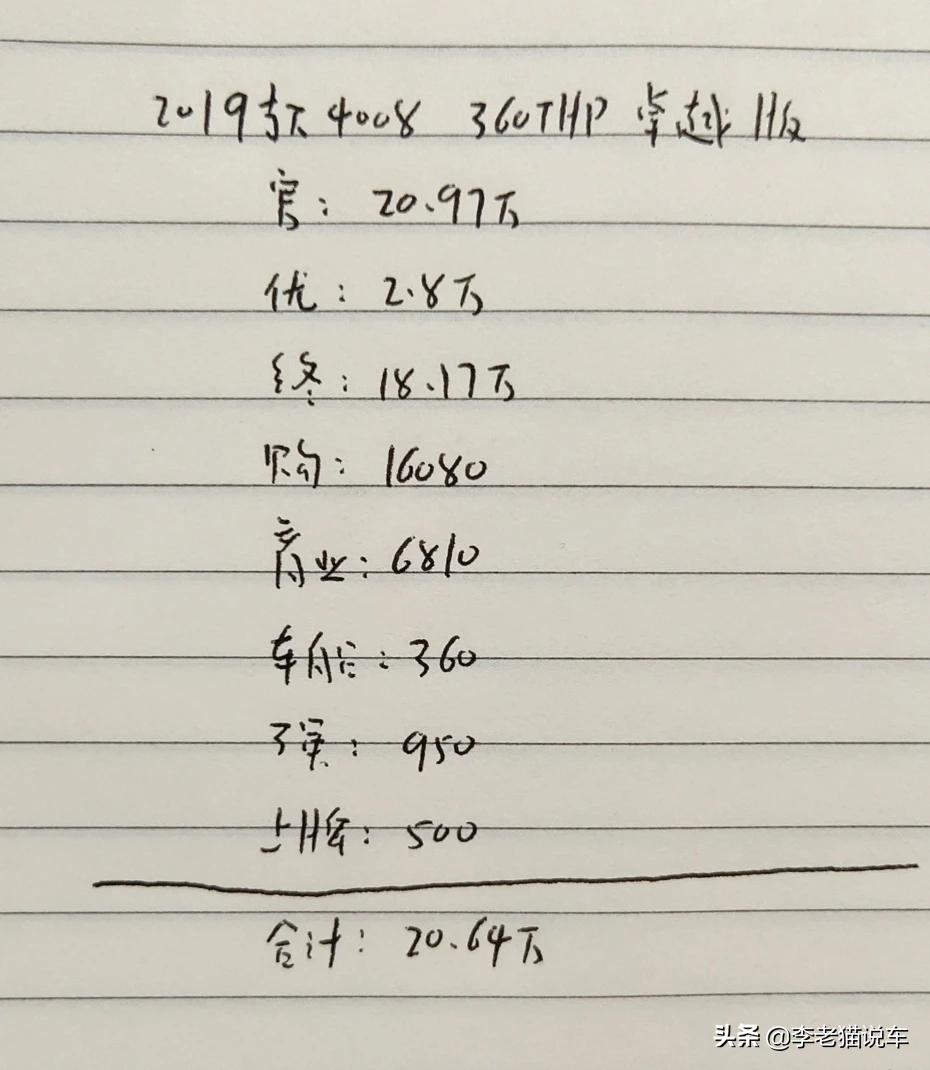 2019款4008 360THP 卓越版
官：20.97万
优：2.8万
终：18.17万
购：16080
商业：6810
车船：360
交强：950
上牌：500
合计：20.64万
头条 @李老猫说车